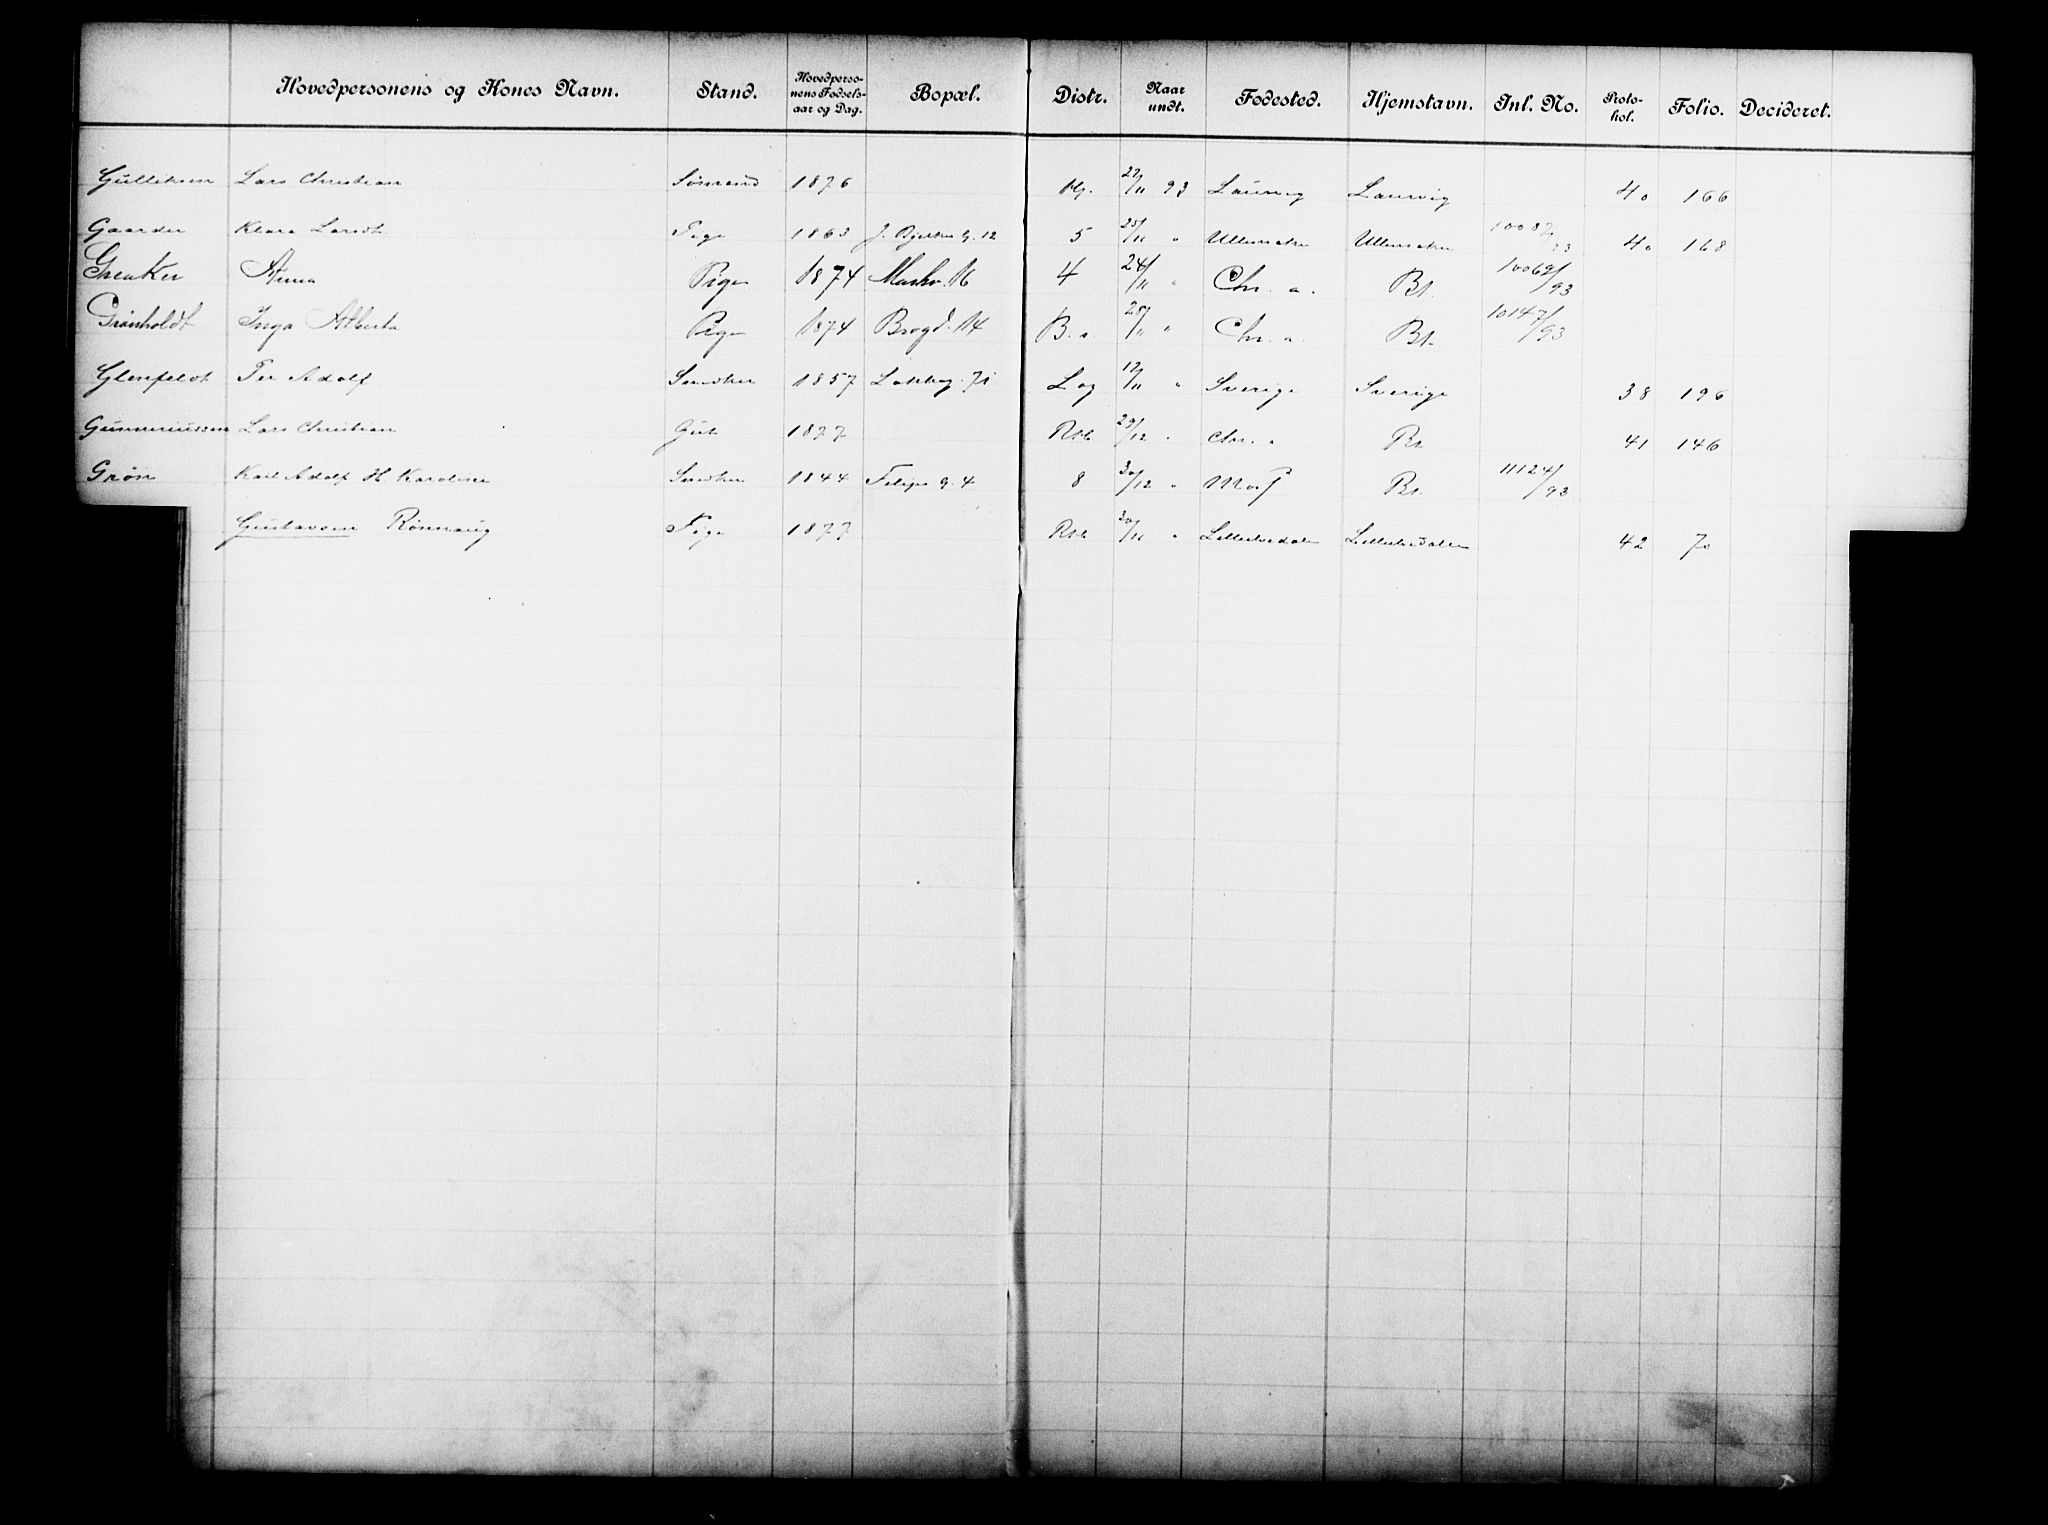 Hovedpersonens og Kones Navn. Stand. Hovedperso-nens Fødsels-aar og Dag. Bopæl. Distr. Naar undt. Fødested. Hjemstavn. Inl. No. Proto-kol. Folio. Decideret.
Gulliksen Lars Christian Sömand 1876 22/11 93 Laurvig Laurvig 40 166
Gaarder Klara Larsdt. Pige 1863 J. Bjelkes g. 12 5 25/11 " Ullensaker Ullensaker 10087/93 40 168
Greaker Anna Pige 1874 Markv. 16 4 24/11 " Chr. a. Bt. 10069/93
Grönholdt Inga Alberta Pige 1874 Brogd. 14 B. a. 28/11 " Chr. a. Bt. 10147/93
Glenfeldt Per Adolf Snedker 1857 71 Log 12/11 " Sverige Sverige 38 196
Gunneriussen Lars Christian Gut 1877 29/12 " Chr. a Bt. 41 146
Grön Karl Adolf H Karoline Snedker 1844 Filips g. 4 8 30/12 " Moss Bt. 11124/93
Gustavsen Rönnaug Pige 1877 30/11 " 42 70